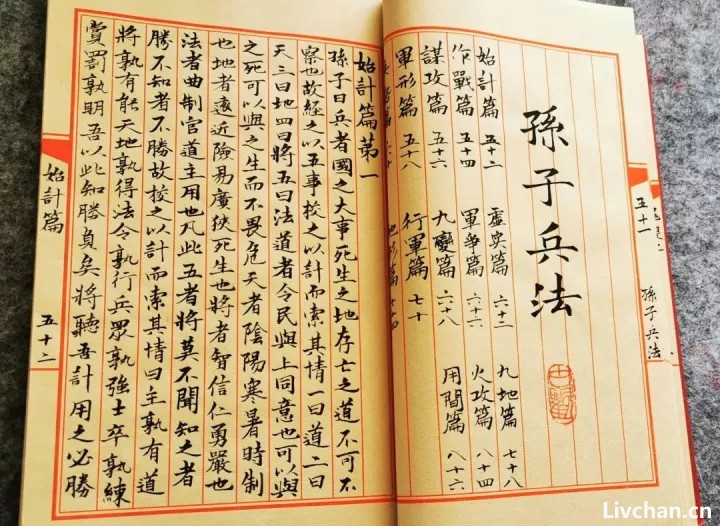 孫子兵法
五十一
孫子兵法
始計篇 五十二 虛實篇 六十二 九地篇 七十八
作戰篇 五十四 軍爭篇 六十六 火攻篇 八十四
謀攻篇 五十六 九變篇 六十八 用間篇 八十六
軍形篇 五十八 行軍篇 七十
篇 六十 地形篇 七十四
始計篇第一
孫子曰兵者國之大事死生之地存亡之道不可不
察也故經之以五事校之以計而索其情一曰道二曰
天三曰地四曰將五曰法道者令民與上同意也可以與
之死可以與之生而不畏危天者陰陽寒暑時制
也地者遠近險易廣狹死生也將者智信仁勇嚴也
法者曲制官道主用也凡此五者將莫不聞知之者
勝不知者不勝故校之以計而索其情曰主孰有道
將孰有能天地孰得法令孰行兵眾孰強士卒孰練
賞罰孰明吾以此知勝負矣將聽吾計用之必勝
始計篇
五十二
Livchan.cn